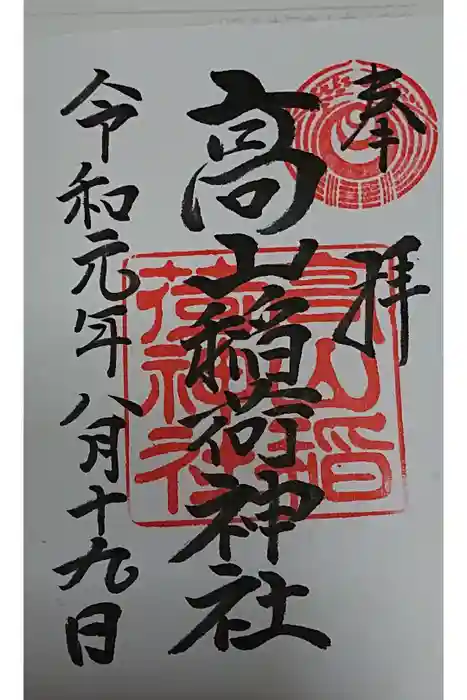 奉拝
高山稲荷神社
令和元年八月十九日
高山稲
荷神社